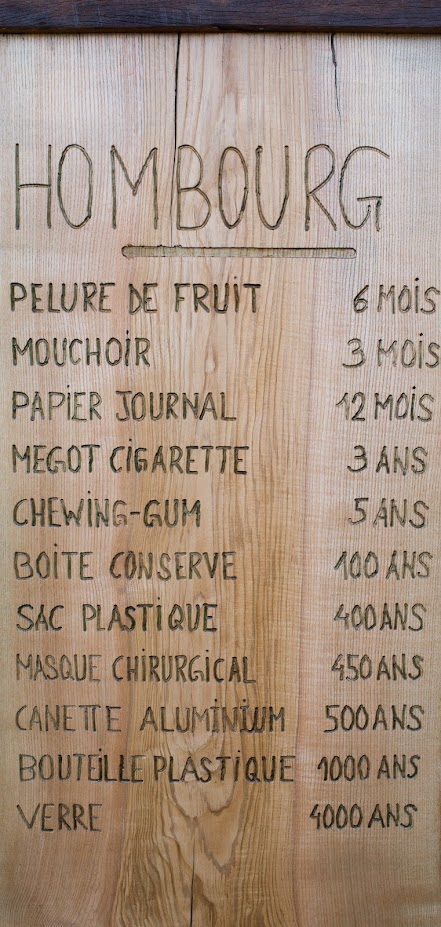 HOMBOURG
PELURE DE FRUIT 6 MOIS
MOUCHOIR 3 MOIS
PAPIER JOURNAL 12 MOIS
MEGOT CIGARETTE 3 ANS
CHEWING-GUM 5 ANS
BOITE CONSERVE 100 ANS
SAC PLASTIQUE 400 ANS
MASQUE CHIRURGICAL 450 ANS
CANETTE ALUMINIUM 500 ANS
BOUTEILLE PLASTIQUE 1000 ANS
VERRE 4000 ANS